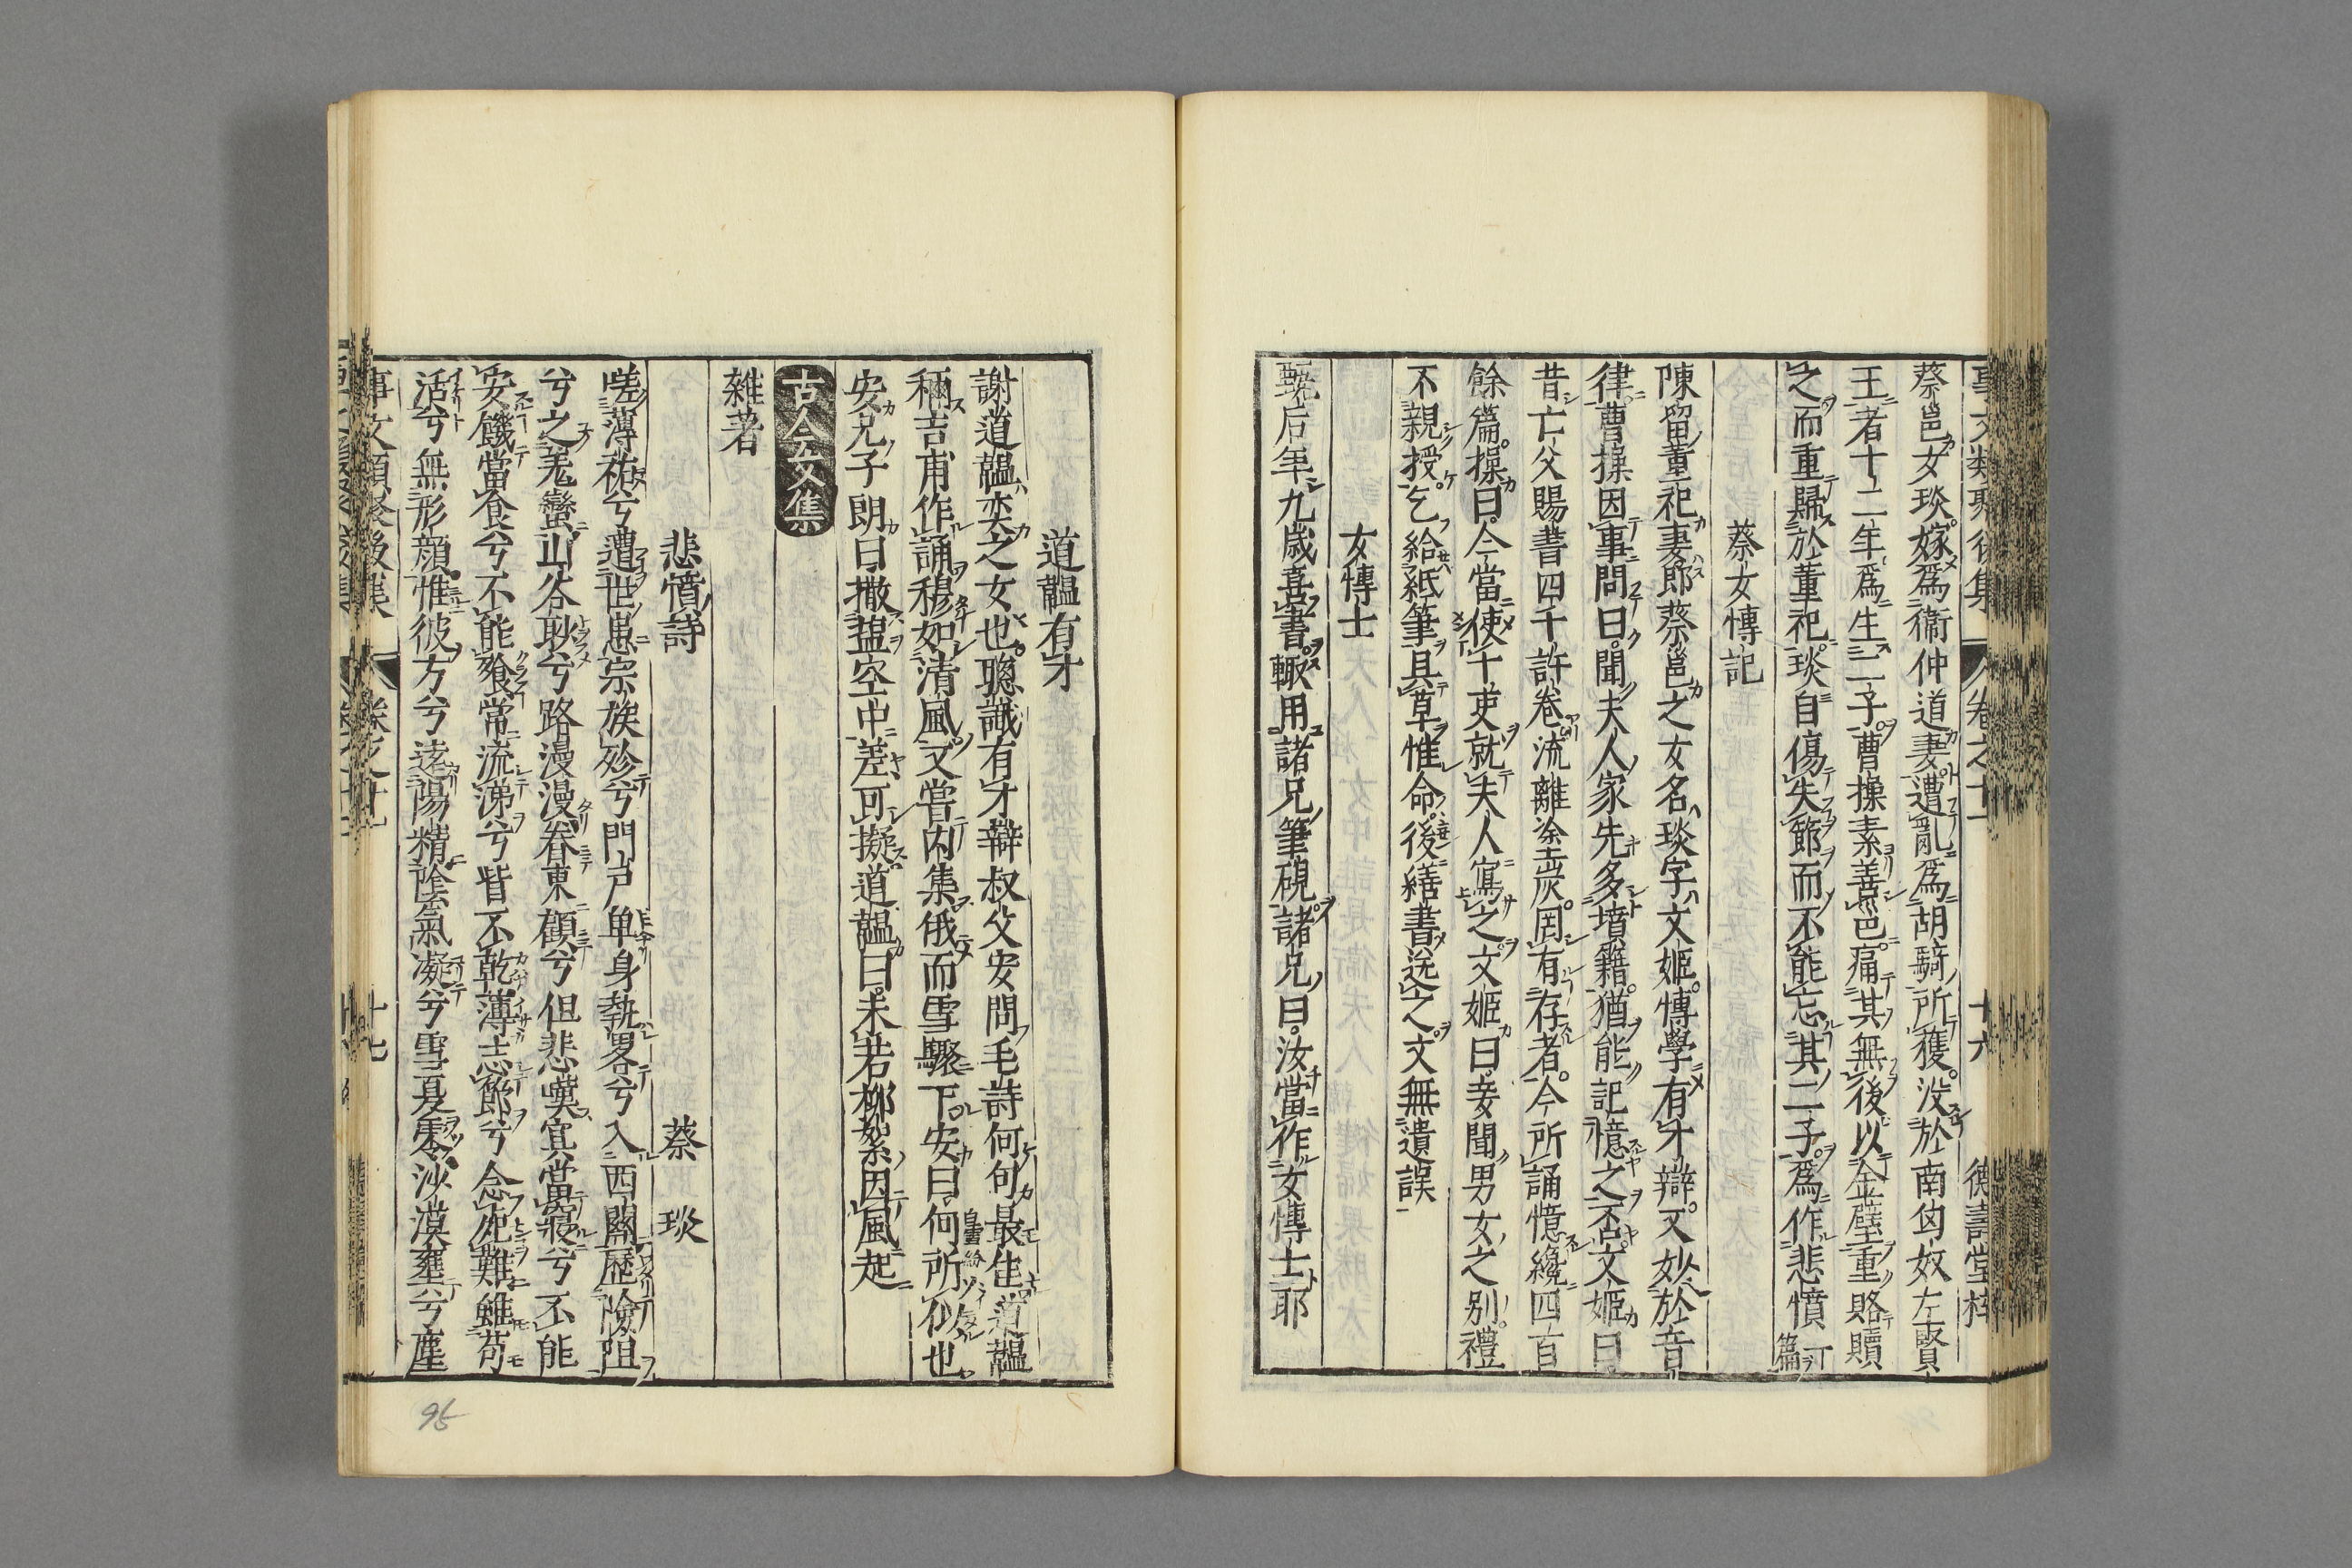 事文類聚後集 卷之十一 十六 德壽堂梓
蔡邕女琰嫁爲衞仲道妻遭亂爲胡騎所獲没於南匈奴左賢
王者十二年爲生二子曹操素善邕痛其無後以金璧重賂贖
之而重歸於董祀琰自傷失節而不能忘其二子爲作悲憤
二篇
蔡女慱記
陳留董祀妻郎蔡邕之女名琰字文姬慱學有才辯又妙於音
律曹操因事問曰聞夫人家先多墳籍猶能記憶之否文姬曰
昔亡父賜書四千許卷流離塗炭罔有存者今所誦憶纔四百
餘篇操曰今當使十吏就夫人寫之文姬曰妾聞男女之別禮
不親授乞給紙筆具草惟命後繕書送之文無遺誤
女慱士
甄后年九歲喜書輙用諸兄筆硯諸兄曰汝當作女慱士耶
道韞有才
謝道韞奕之女也聰識有才辯叔父安問毛詩何句最佳道韞
稱吉甫作誦穆如清風又嘗内集俄而雪驟下安曰何所似也
安兄子朗曰撒塩空中差可擬道韞曰未若柳絮因風起
古今文集
雜著
悲憤詩 蔡琰
嗟薄祐兮遭世患宗族殄兮門戸单身執畧兮入西關歷險阻
兮之羗蠻山谷眇兮路漫漫眷東顧兮但悲嘆冥當寢兮不能
安饑當食兮不能飧常流涕兮眥不乾薄志節兮念死難雖苟
活兮無形顔惟彼方兮逺陽精陰氣凝兮雪夏零沙漠壅兮塵
事文類聚後集 卷之十一 十七
95